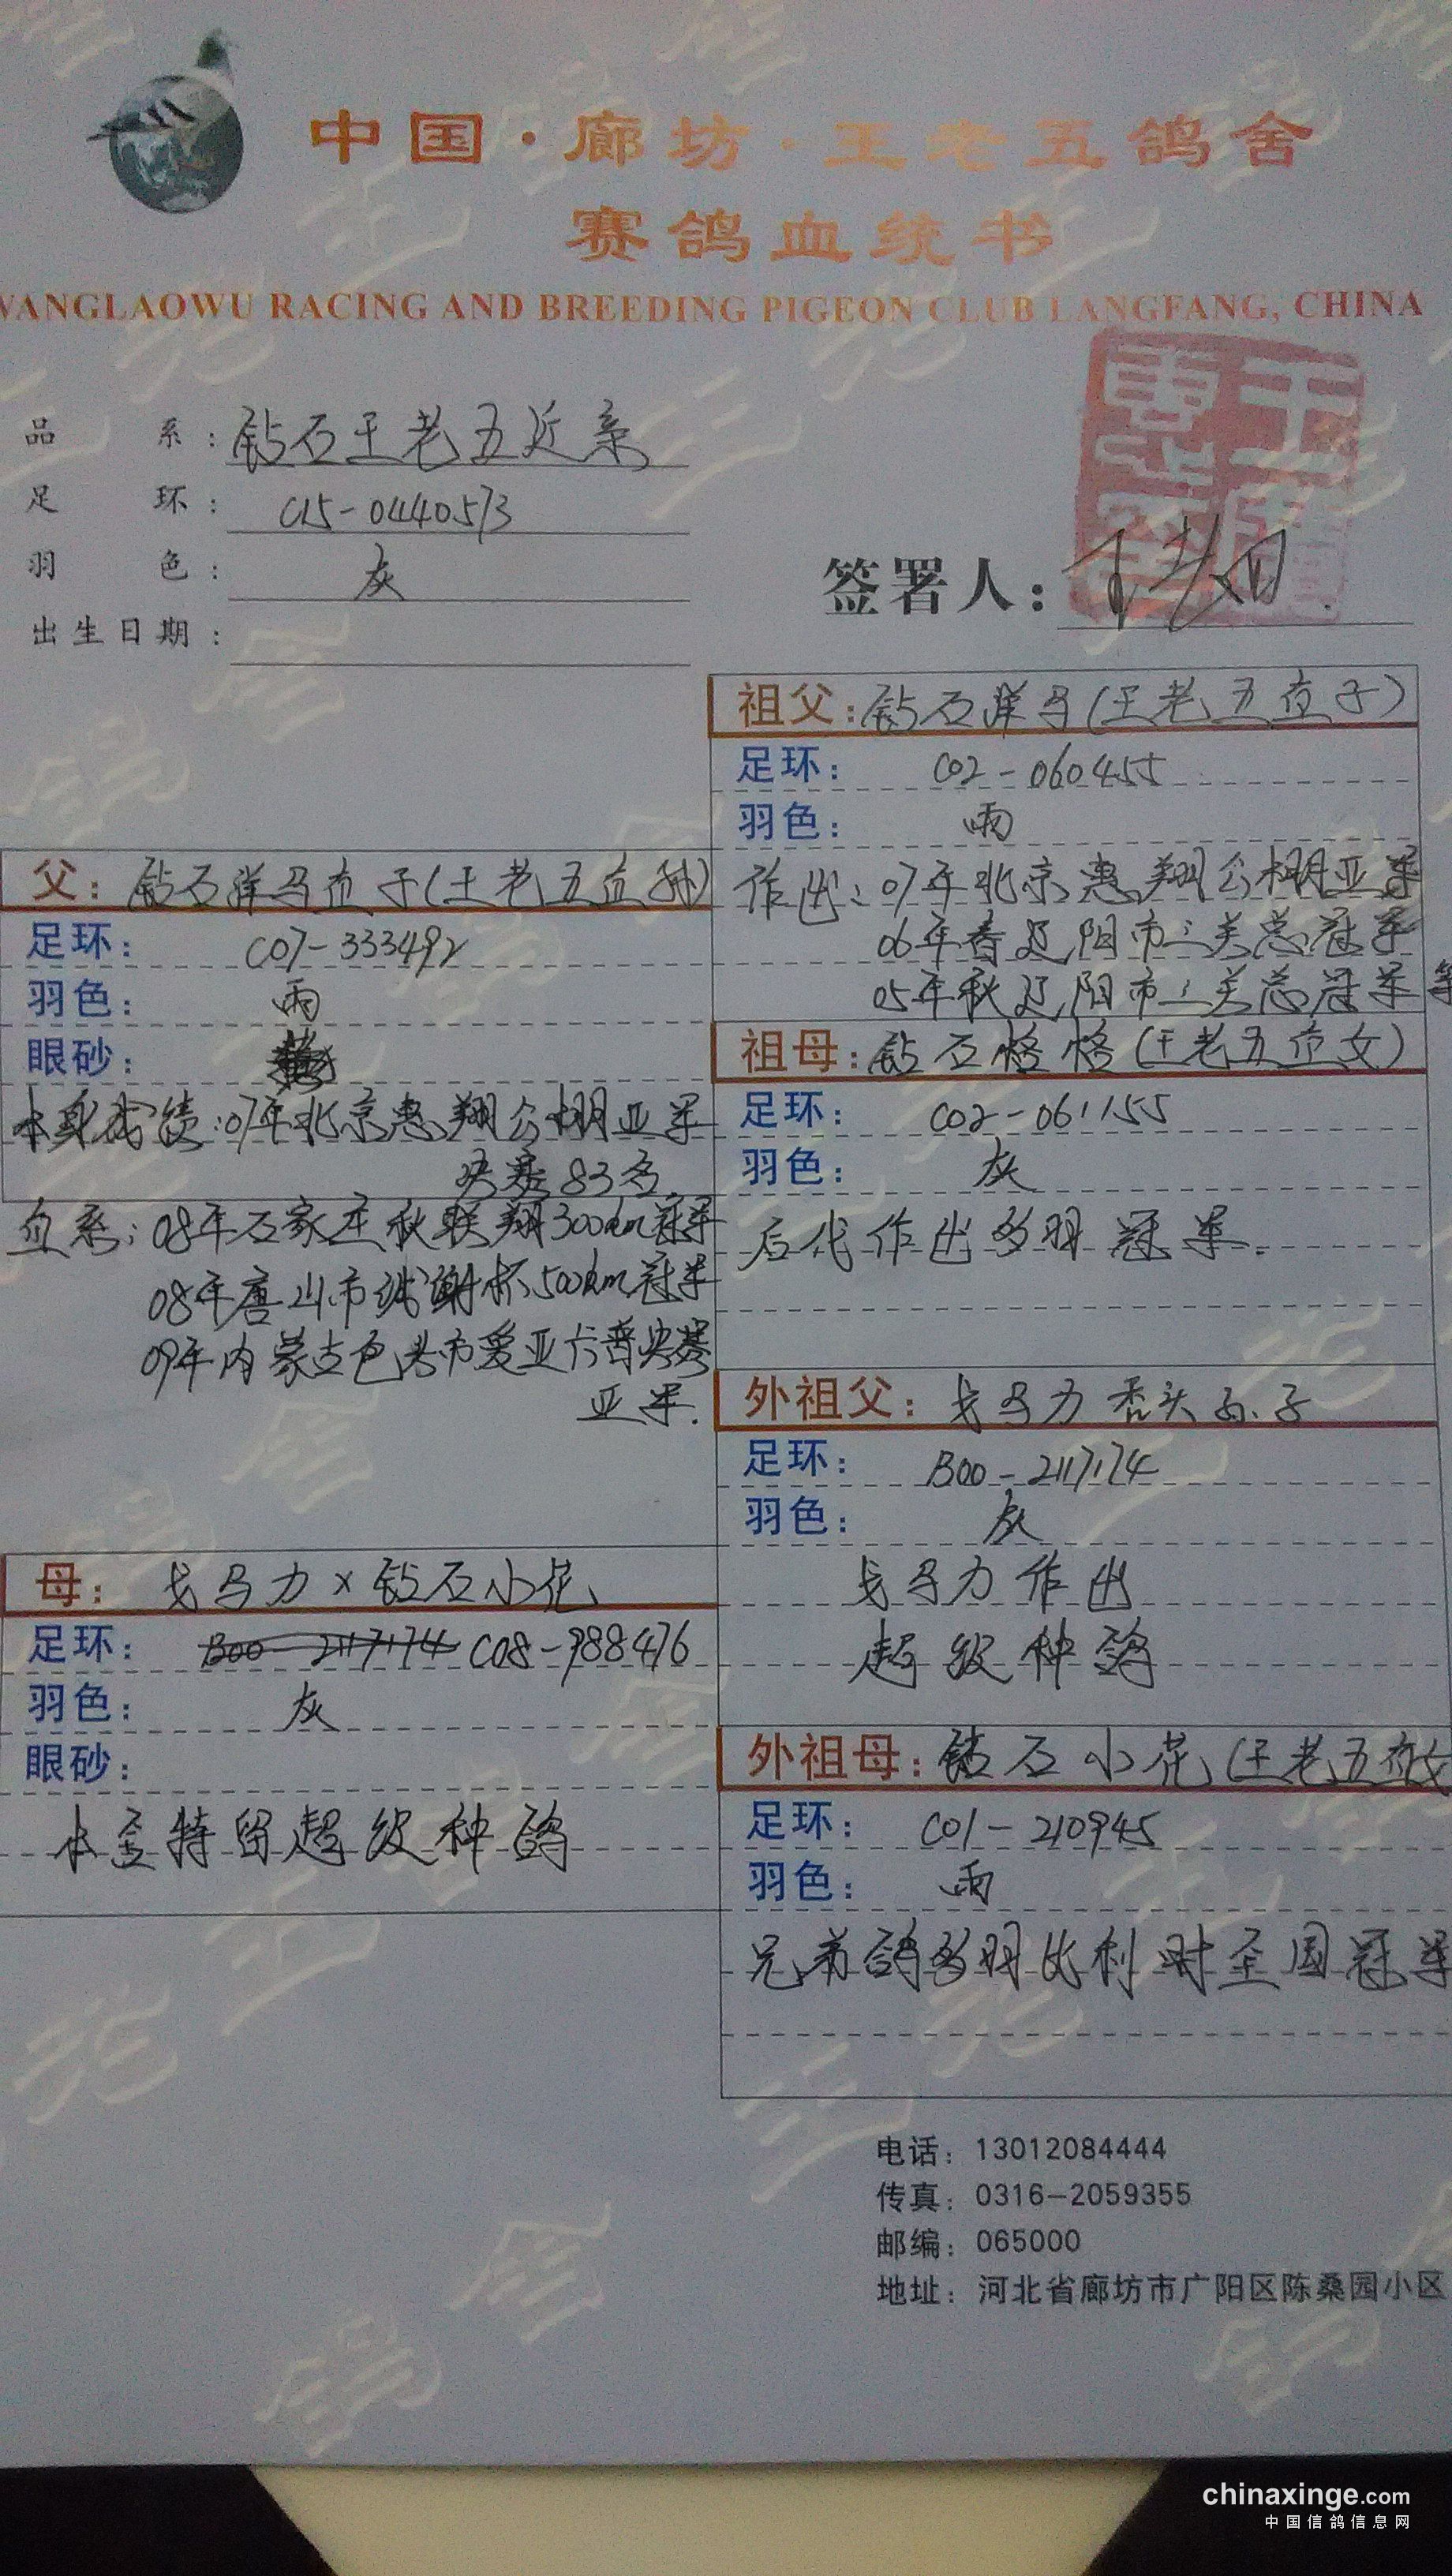 中国·廊坊·王老五鸽舍
赛鸽血统书
WANGLAOWU RACING AND BREEDING PIGEON CLUB LANGFANG, CHINA
品 系：钻石王老五近亲
足 环：C15-0440573
羽 色：灰
出生日期：
签署人：
祖父：钻石洋马(王老五直子)
足环：C02-060455
羽色：雨
作出：07年北京惠翔公棚亚军
06年春辽阳市三关总冠军
05年秋辽阳市三关总冠军等
父：钻石洋马直子(王老五直孙)
足环：C07-333492
羽色：雨
眼砂：
本身成绩：07年北京惠翔公棚亚军
决赛83名
血系：08年石家庄秋联翔300km冠军
08年唐山市 杯500km冠军
09年内蒙古包头市爱亚卡普决赛
亚军.
祖母：钻石格格(王老五直女)
足环：C02-061155
羽色：灰
后代作出多羽冠军.
外祖父：戈马力秃头孙子
足环：B00-2117174
羽色：灰
戈马力作出
超级种鸽
母：戈马力×钻石小花
足环：B00-2117174 C08-988476
羽色：灰
眼砂：
本舍特留超级种鸽
外祖母：钻石小花(王老五直女
足环：C01-210945
羽色：雨
兄弟鸽多羽比利时全国冠军
电话：13012084444
传真：0316-2059355
邮编：065000
地址：河北省廊坊市广阳区陈桑园小区
chinaxinge.com
中国信鸽信息网